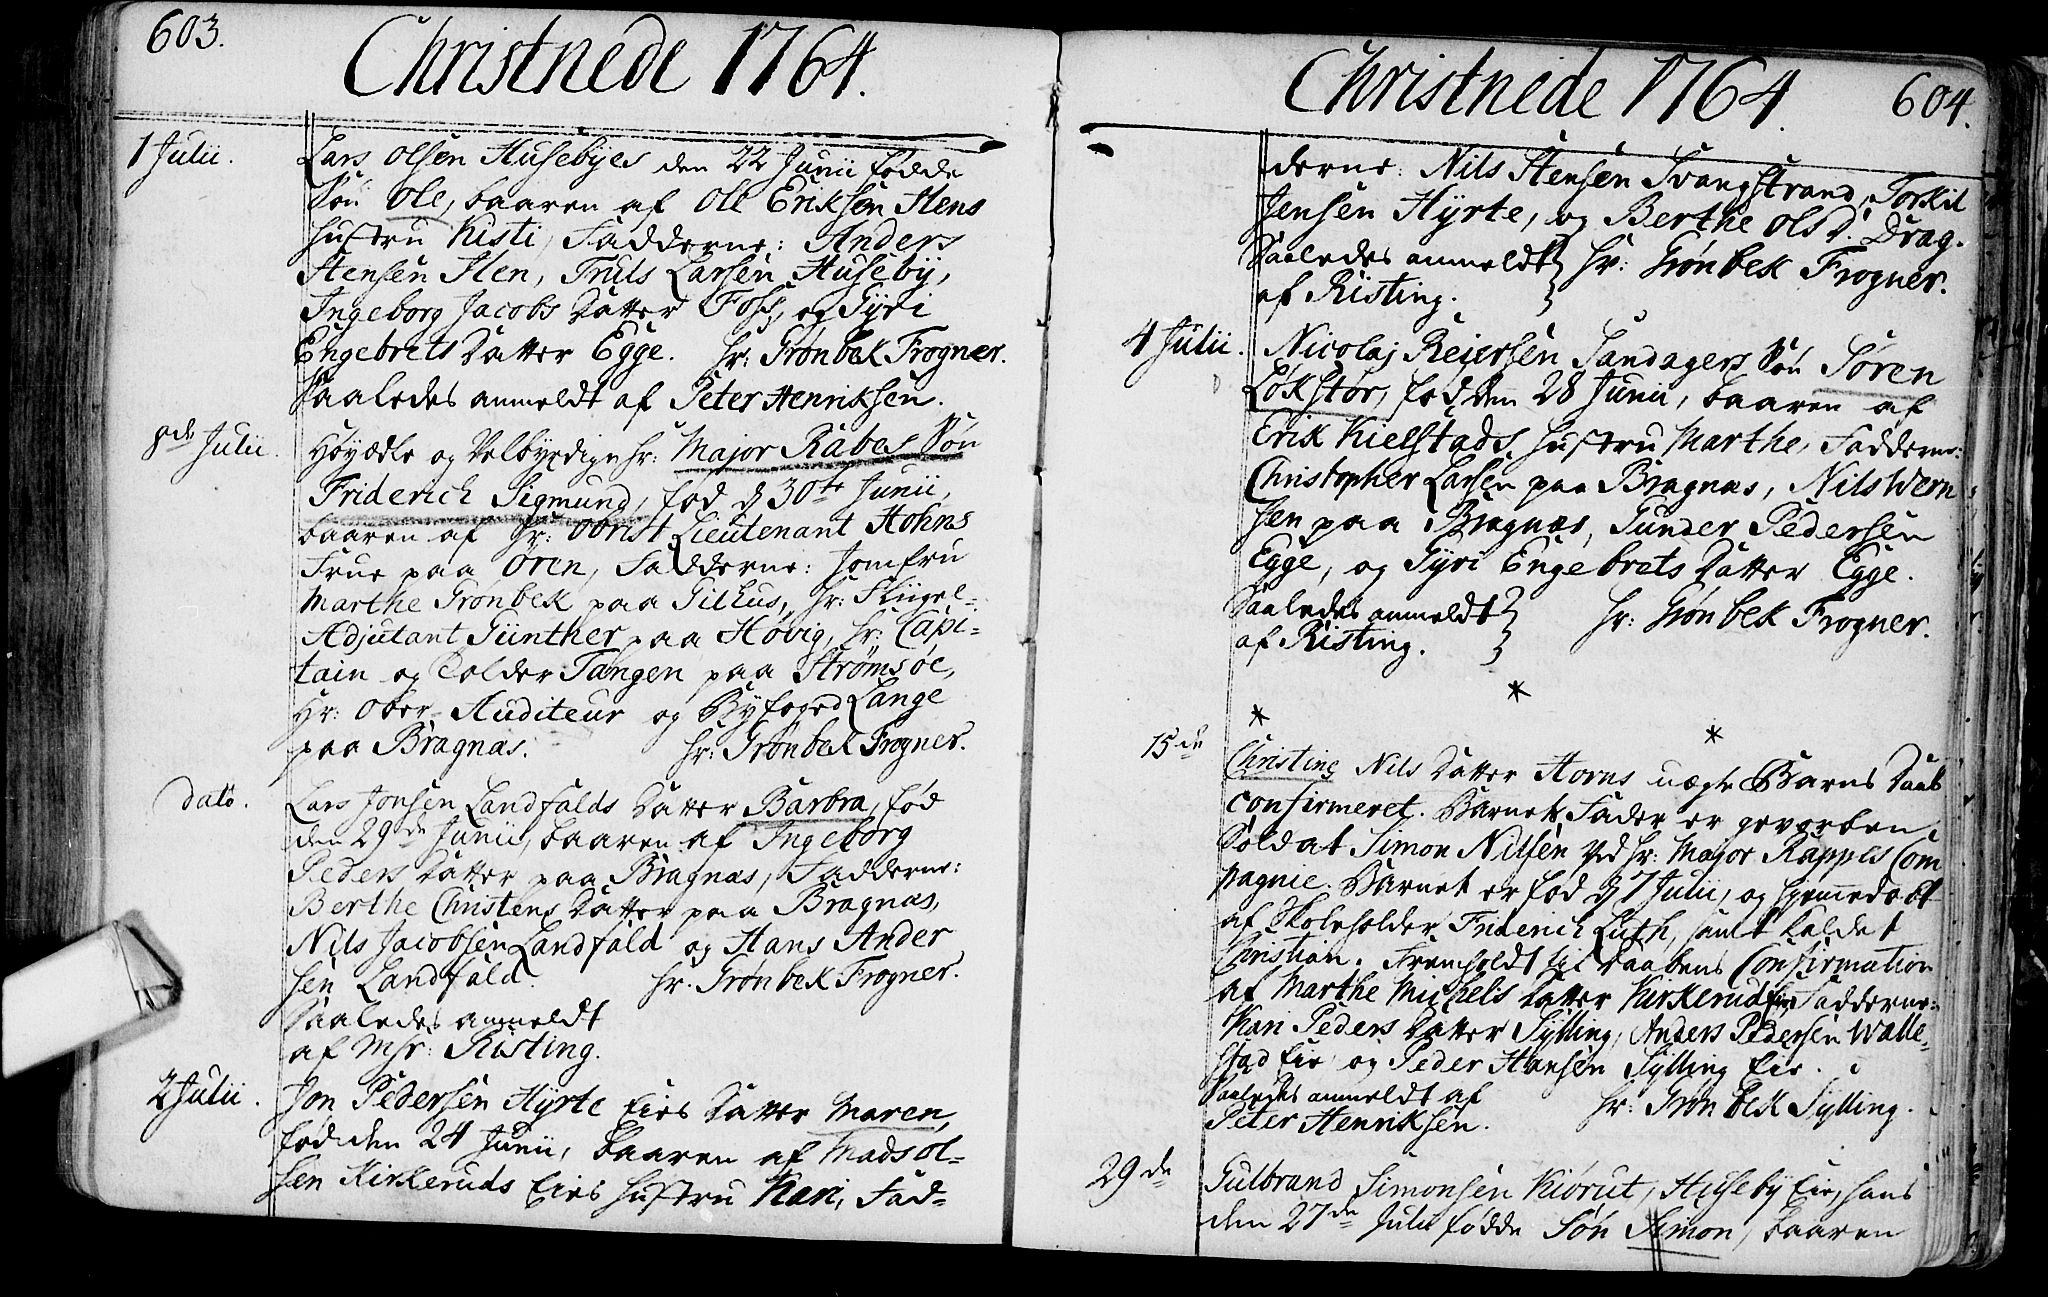 603.
Christnede 1764.
1 Julii.
Lars Olsen Husebyes den 22 Junii fødde
Søn Ole, baaren af Ole Eriksen Hens
Hustru Kisti, Fadderne: Anders
Stensen Hen, Truls Larsen Huseby,
Ingeborg Jacobs Datter Foss, og Gyri
Engebrets Datter Egge. Hr: Grønbek Frogner.
Saaledes anmeldt af Peter Henriksen.
8de Julii.
Høyædle og Velbyrdige Hr: Major Rabes Søn
Friderich Sigmund, fød d 30te Junii,
baaren af Hr: Obrist Lieutenant Hohns
Frue paa Oren, Fadderne: Jomfru
Marthe Grønbek paa Gilhus, Hr: Flügel-
Adjutant Günther paa Høvig, Hr: Capi-
tain og Tolder Tangen paa Strømsøe,
Hr: Ober-Auditeur og Byfoged Lange
paa Bragnæs. Hr: Grønbek Frogner.
Dato.
Lars Jonsen Landfalds Datter Barbra, fød
den 29de Junii, baaren af Ingeborg
Peders Datter paa Bragnæs, Fadderne:
Berthe Christens Datter paa Bragnæs,
Nils Jacobsen Landfald og Hans Ander
sen Landfald. Hr. Grønbek Frogner.
Saaledes anmeldt
af Msr: Risting.
2 Julii.
Jon Pedersen Hyrte Eies Datter Maren,
fød den 24 Junii, baaren af Mads Ol-
sen Kirkeruds Eies Hustru Kari, Fad-
Christnede 1764.
604.
derne: Nils Stensen Svangstrand, Torkil
Jensen Hyrte, og Berthe Ols D. Drag.
Saaledes anmeldt Hr: Grønbek Frogner.
af Risting.
4 Julii.
Nicolaj Reiersen Sandagers Søn Søren
Løkstør, fød den 28 Junii, baaren af
Erik Kielstads Hustru Marthe, Fadderne:
Christopher Larsen paa Bragnæs, Nils Wern
sen paa Bragnæs, Gunder Pedersen
Egge, og Gyri Engebrets Datter Egge.
Saaledes anmeldt Hr: Grønbek Frogner.
af Risting.
*
* *
15de
Christine Nils Datter Horns uægte Barns Daab
confirmeret. Barnets Fader er gevorben
Soldat Simon Nilsen ved Hr: Major Rappes Com
pagnie. Barnet er fød d 7 Julii, og hiemmedøbt
af Skoleholder Friderich Luth, samt kaldet
Christian. Fremholdt til Daabens Confirmation
af Marthe Michels Datter Kirkerud Eie Fadderne:
Kari Peders Datter Sylling, Anders Pedersen Walle-
stad Eie og Peder Hansen Sylling Eie.
Saaledes anmeldt af Hr: Grønbek Sylling.
Peter Henriksen.
29de
Gulbrand Simonsen Kiørut, Huseby Eie, hans
den 27de Julii fødde Søn Simon, baaren